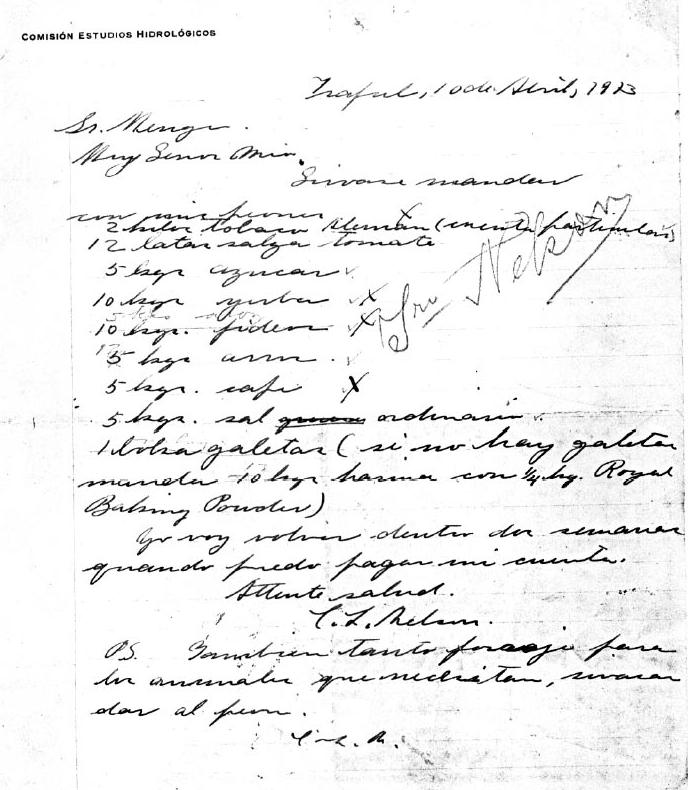 COMISIÓN ESTUDIOS HIDROLÓGICOS
Traful, 10 de Abril, 1913
Sr. Menge.
Muy Señor Mio.
Sirvase mandar
con mis peones
2 kilos tobaco Aleman (cuenta particular)
12 latas salza tomate
5 kgr azucar
10 kgr yerba X
10 kgr. fideos X
5 kgr arroz
5 kgr. cafe X
5 kgr. sal ordinaria
1 bolsa galetas (si no hay galetas
mandar 10 kgr harina con 1/4 kg. Royal
Baking Powder)
Sr Nelson
Yo voy volver dentro dos semanas
quando puedo pagar mi cuenta.
Attente salud.
C. L. Nelson.
P.S. Tambien tanto forraje para
los animales que necisitan, sirvase
dar al peon.
C. L. N.